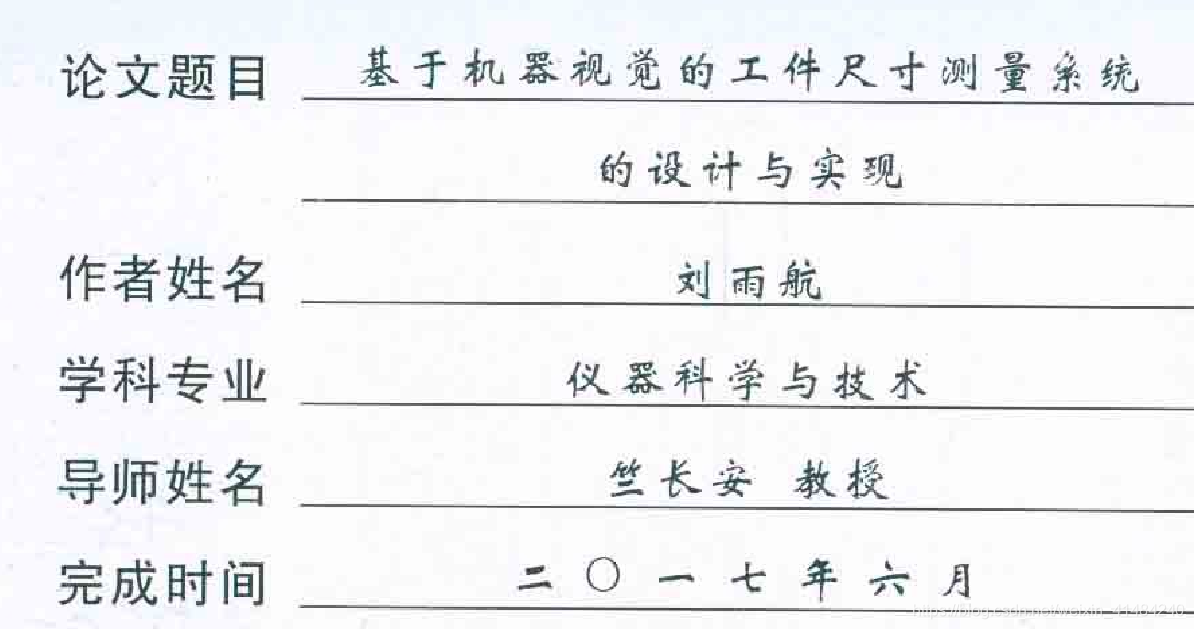 论文题目 基于机器视觉的工件尺寸测量系统
的设计与实现
作者姓名 刘雨航
学科专业 仪器科学与技术
导师姓名 竺长安 教授
完成时间 二〇一七年六月